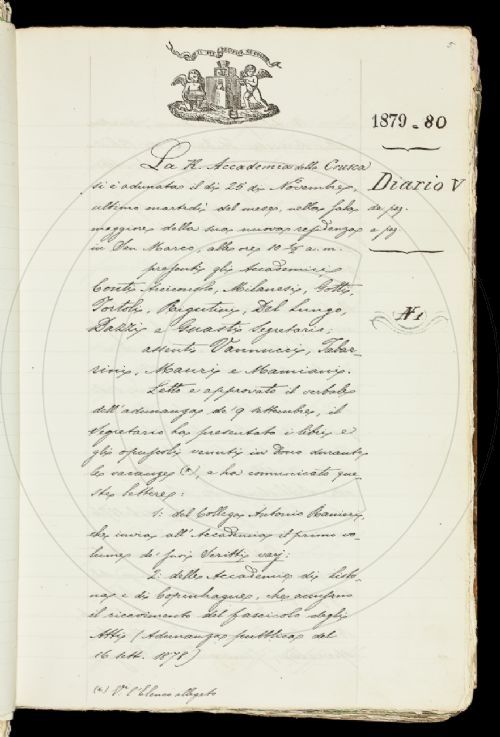 5
IL PIÙ BEL FIOR NE COGLIE
1879-80
Diario V
da pag.
a pag.
N. 1
La R. Accademia della Crusca
si è adunata il dì 25 di Novembre,
ultimo martedì del mese, nella sala
maggiore della sua nuova residenza
in San Marco, alle ore 10 ½ a. m.
presenti gli Accademici
Conti Arciconsolo, Milanesi, Gotti,
Tortoli, Rigutini, Del Lungo,
Dazzi e Guasti Segretario;
assenti Vannucci, Tabar-
rini, Mauri e Mamiani.
Letto e approvato il verbale
dell'adunanza de' 9 settembre, il
Segretario ha presentato i libri e
gli opuscoli venuti in dono durante
le vacanze (*), e ha comunicate que-
ste lettere:
1: del Collega Antonio Ranieri,
che invia all'Accademia il primo vo-
lume de' suoi Scritti varj:
2: delle Accademie di Lisbo-
na e di Copenhaguen, che accusano
il ricevimento del fascicolo degli
Atti (Adunanza pubblica del
16 sett. 1878)
(*) V. l'Elenco allegato